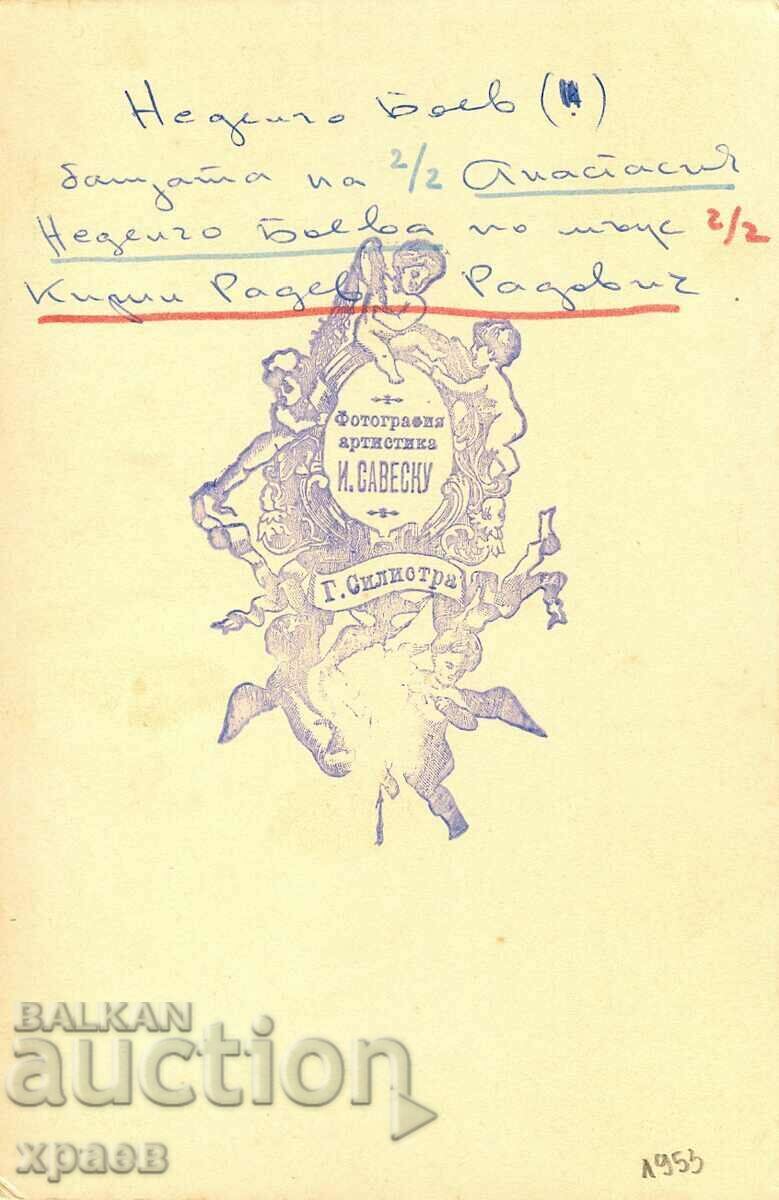 Неделчо Боев (!!)
бащата на 2/2 Анастасия
Неделчо Боева по мъж 2/2
Кирил Радев Радович.
Фотография
артистика
И. САВЕСКУ
Г. Силистра
BALKAN
auction
храев
1953